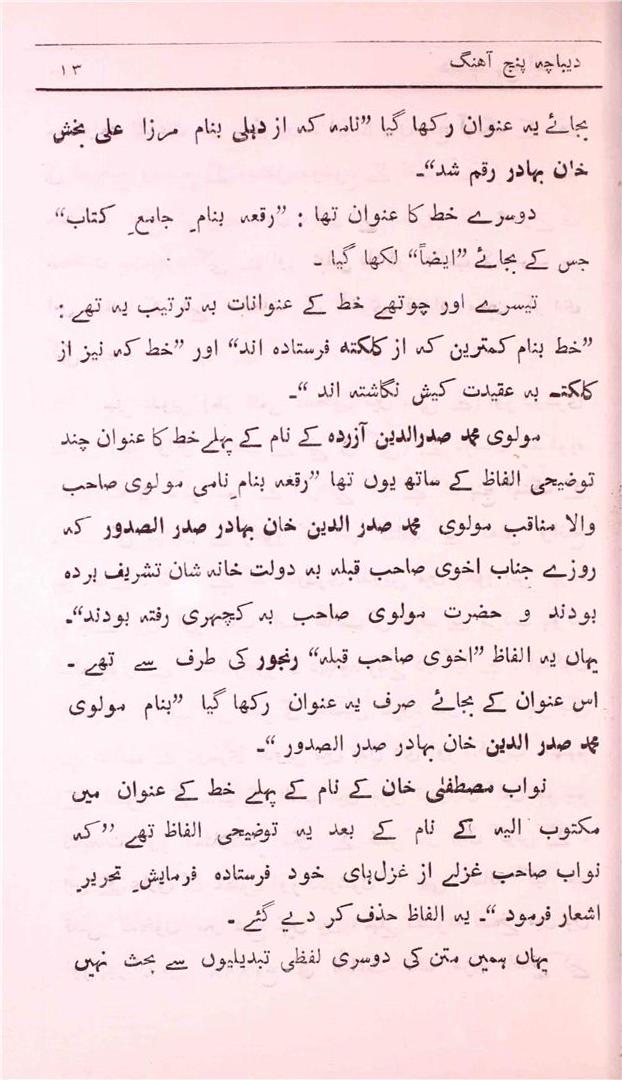 دیباچہ پنج آهنگ ۱۳
بجائے یہ عنوان رکھا گیا ”نامہ کہ از دہلی بنام مرزا علی بخش
خان بہادر رقم شد“۔
دوسرے خط کا عنوان تھا : ”رقعہ بنامِ جامعِ کتاب“
جس کے بجائے ”ایضاً“ لکھا گیا ۔
تیسرے اور چوتھے خط کے عنوانات بہ ترتیب یہ تھے :
”خط بنام کمترین کہ از کلکتہ فرستادہ اند“ اور ”خط کہ نیز از
کلکتہ بہ عقیدت کیش نگاشتہ اند “۔
مولوی محمد صدرالدین آزردہ کے نام کے پہلے خط کا عنوان چند
توضیحی الفاظ کے ساتھ یوں تھا ”رقعہ بنامِ نامی مولوی صاحب
والا مناقب مولوی محمد صدر الدین خان بہادر صدر الصدور کہ
روزے جناب اخوی صاحب قبلہ بہ دولت خانہ شان تشریف بردہ
بودند و حضرت مولوی صاحب بہ کچہری رفتہ بودند“۔
یہاں یہ الفاظ ”اخوی صاحب قبلہ“ رنجور کی طرف سے تھے ۔
اس عنوان کے بجائے صرف یہ عنوان رکھا گیا ”بنام مولوی
محمد صدر الدین خان بہادر صدر الصدور “۔
نواب مصطفیٰ خان کے نام کے پہلے خط کے عنوان میں
مکتوب الیہ کے نام کے بعد یہ توضیحی الفاظ تھے ”کہ
نواب صاحب غزلے از غزل‌ہای خود فرستادہ فرمایشِ تحریرِ
اشعار فرمود “۔ یہ الفاظ حذف کر دیے گئے ۔
یہاں ہمیں متن کی دوسری لفظی تبدیلیوں سے بحث نہیں